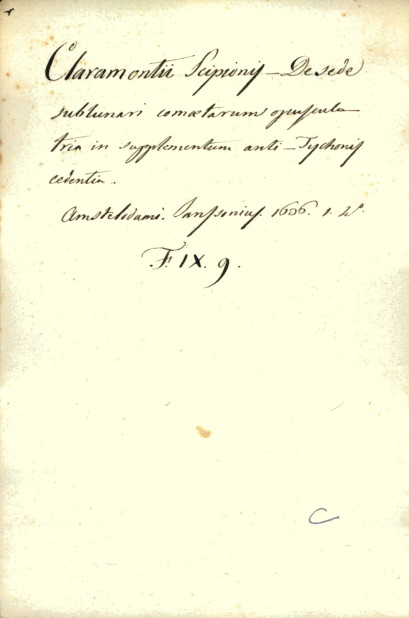 Claramontii Scipionis – De sede
sublunari comætarum opuscula
tria in supplementum anti – Tychonis
cedentia.
Amstelodami. Janssonius. 1636. 1. 4º.
F. IX. 9.
C